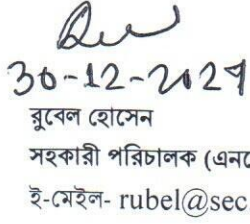 30-12-2024
রুবেল হোসেন
সহকারী পরিচালক (এনফ
ই-মেইল- rubel@sec